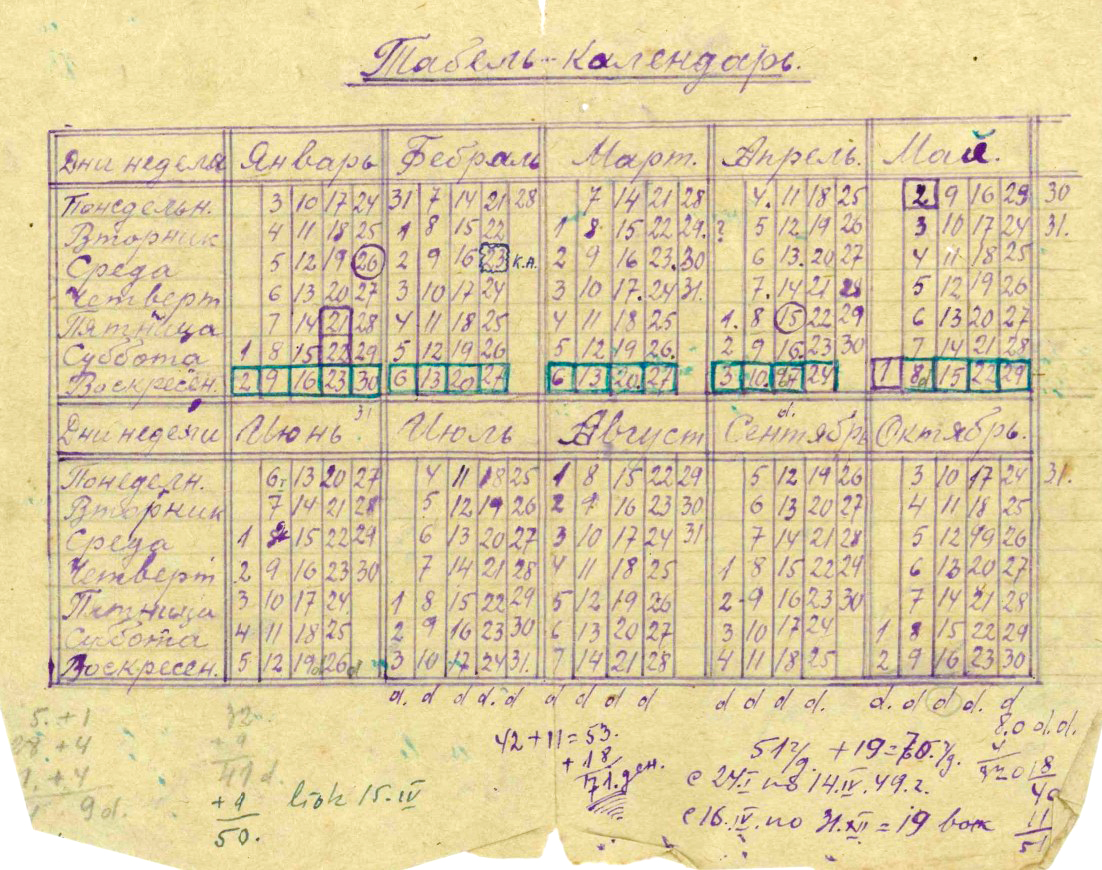 Табель-Календарь.
Дни недели Январь Февраль Март. Апрель. Май.
Понедельн. 3 10 17 24 31 7 14 21 28 7 14 21 28 4. 11 18 25 2 9 16 29 30
Вторник 4 11 18 25 1 8 15 22 1 8 15 22 29. ? 5 12 19 26 3 10 17 24 31.
Среда 5 12 19 26 2 9 16 23 К.А. 2 9 16 23. 30 6 13. 20 27 4 11 18 25
Четверг 6 13 20 27 3 10 17 24 3 10 17. 24 31. 7. 14 21 28 5 12 19 26
Пятница 7 14 21 28 4 11 18 25 4 11 18 25 1. 8 15 22 29 6 13 20 27
Суббота 1 8 15 22 29 5 12 19 26 5 12 19 26. 2 9 16. 23 30 7 14 21 28
Воскресен. 2 9 16 23 30 6 13 20 27 6 13 20. 27 3 10. 17 24 1 8d 15 22 29
31 d.
Дни недели Июнь Июль Август Сентябрь Октябрь.
Понедельн. 6 13 20 27 4 11 18 25 1 8 15 22 29 5 12 19 26 3 10 17 24 31.
Вторник 7 14 21 28 5 12 19 26 2 9 16 23 30 6 13 20 27 4 11 18 25
Среда 1 8 15 22 29 6 13 20 27 3 10 17 24 31 7 14 21 28 5 12 19 26
Четверг 2 9 16 23 30 7 14 21 28 4 11 18 25 1 8 15 22 29 6 13 20 27
Пятница 3 10 17 24 1 8 15 22 29 5 12 19 26 2 9 16 23 30 7 14 21 28
Суббота 4 11 18 25 2 9 16 23 30 6 13 20 27 3 10 17 24 1 8 15 22 29
Воскресен. 5 12 19d 26d 3 10 17. 24 31. 7 14 21 28 4 11 18 25 2 9 16 23 30
d. d d d. d d d d d d d d d. d. d d d. d
5. +1 32 42+11=53. 8.0 d.d.
28 +4 +9 +18
+4 41 d. 71. ден. с 24.I по 14.IV.49.г.
9 d. +9 liok 15.IV
50. с 16.IV. по 31.XII = 19
11
51